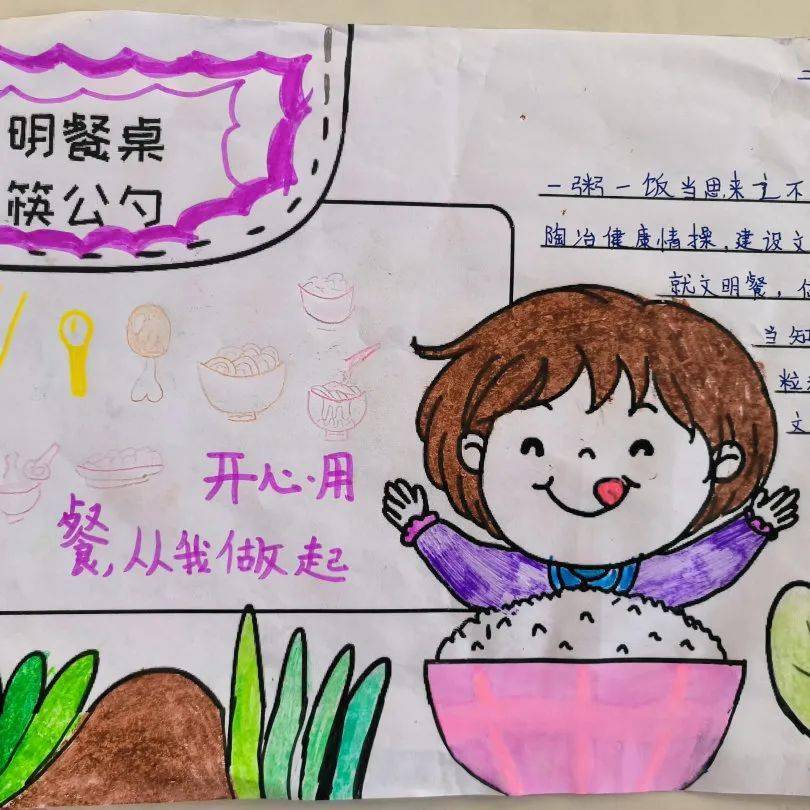 明餐桌
筷公勺
一粥一饭当思来之不
陶冶健康情操,建设文
就文明餐,
当知
粒
文
开心用
餐,从我做起